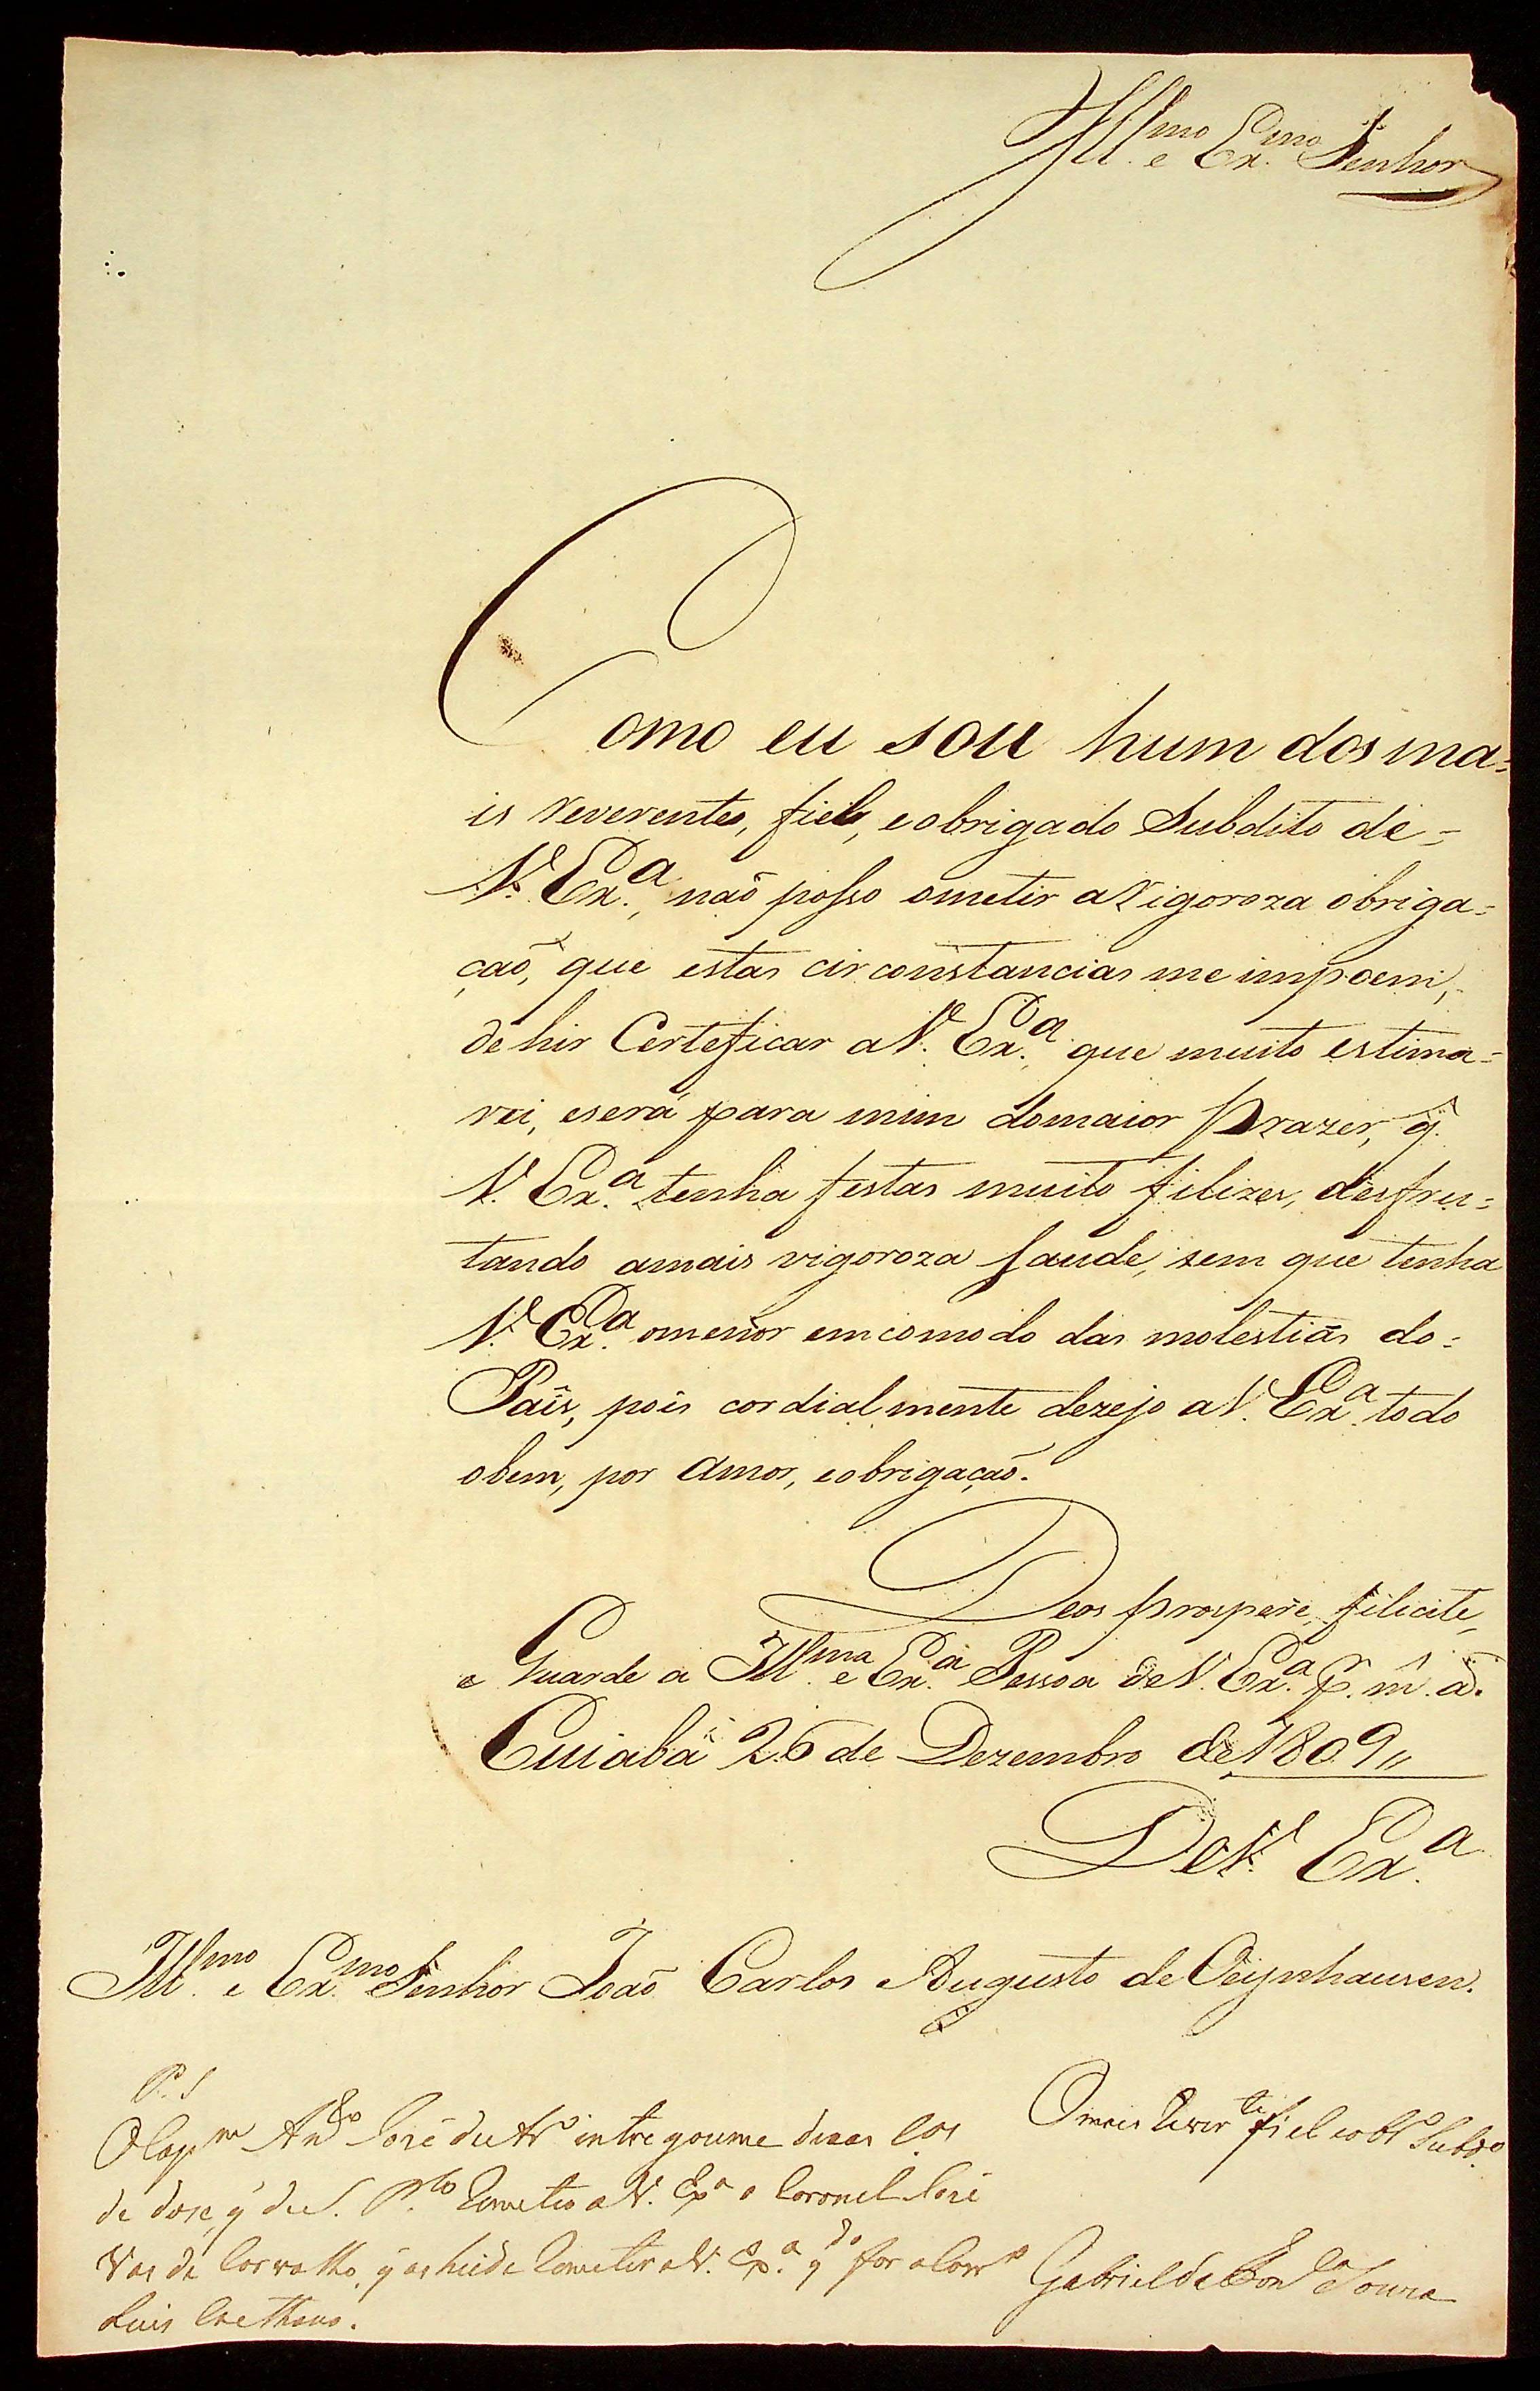 Ill.mo e Ex.mo Senhor
Como eu sou hum dos ma=
is reverente, fiel, eobrigado Subdito de=
V. Ex.a, naõ posso ometir a rigoroza obriga=
çaõ, que estas circonstancias me impoem,
de hir Certeficar a V. Ex.a que muito estima=
rei, eserá para mim domaior prazer, q̃.
V. Ex.a tenha festas muito filizes, desfru=
tando amais vigoroza saude, sem que tenha
V. Ex.a omenor emcomodo das molestias do=
País, pois cordialmente dezejo a V. Ex.a todo
obem, por amor, eobrigaçaõ.
Deos prospere, filicite,
e Guarde a Ill.ma e Ex.a Pessoa de V. Ex.a p. m. a.
Cuiabá 26 de Dezembro de 1809,,
De V. Ex.a
Ill.mo e Ex.mo Senhor Joaõ Carlos Augusto de Oeijnhausen.
P. S
O Cap.m José intregoume
de doce q̃ de S. P.lo Remeteo a V. Ex.a o Coronel José
Vas de Carvalho, q̃ as heide Remeter a V. Ex.a q.do for
Luis Caethano.
O mais Rever.te fiel e ob.o Subd.o
Gabriel da Souza